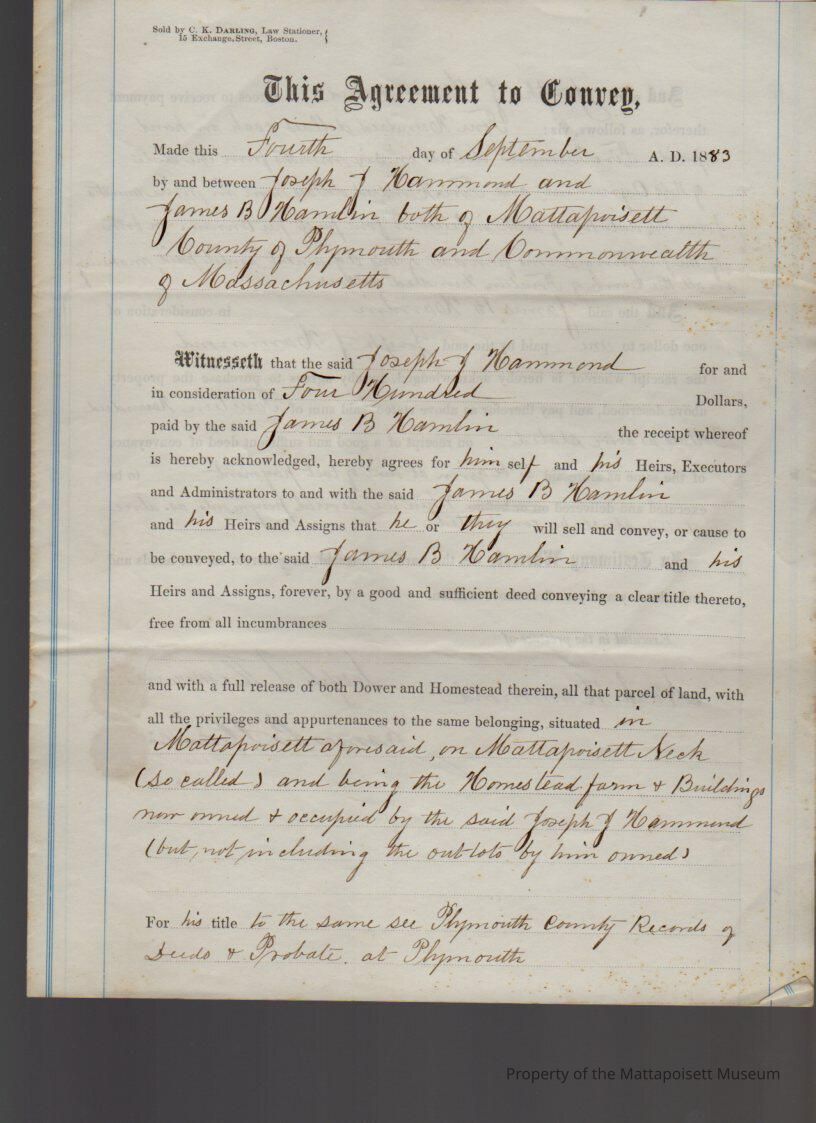 Sold by C. K. DARLING, Law Stationer,
15 Exchange Street, Boston.
This Agreement to Convey,
Made this Fourth day of September A. D. 1883
by and between Joseph J Hammond and
James B Hamlin both of Mattapoisett
County of Plymouth and Commonwealth
of Massachusetts
Witnesseth that the said Joseph J Hammond for and
in consideration of Four Hundred Dollars,
paid by the said James B Hamlin the receipt whereof
is hereby acknowledged, hereby agrees for himself and his Heirs, Executors
and Administrators to and with the said James B Hamlin
and his Heirs and Assigns that he or they will sell and convey, or cause to
be conveyed, to the said James B Hamlin and his
Heirs and Assigns, forever, by a good and sufficient deed conveying a clear title thereto,
free from all incumbrances
and with a full release of both Dower and Homestead therein, all that parcel of land, with
all the privileges and appurtenances to the same belonging, situated in
Mattapoisett aforesaid, on Mattapoisett Neck
(so called) and being the Homestead farm & Buildings
now owned & occupied by the said Joseph J Hammond
(but, not including the outlots by him owned)
For his title to the same see Plymouth County Records of
Deeds & Probate. at Plymouth
Property of the Mattapoisett Museum